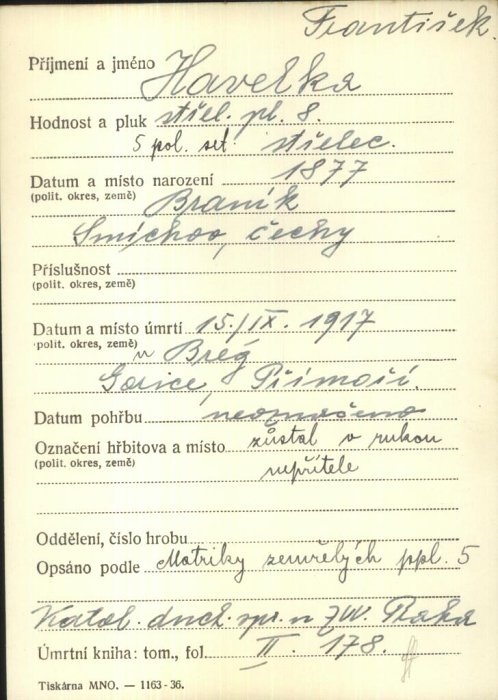 František.
Příjmení a jméno Havelka
Hodnost a pluk střel. pl. 8.
5 pol. set. střelec.
Datum a místo narození 1877
(polit. okres, země) Braník
Smíchov, Čechy
Příslušnost
(polit. okres, země)
Datum a místo úmrtí 15./IX. 1917
(polit. okres, země) u Brég
Gorice, Přímoří.
Datum pohřbu neoznačeno
Označení hřbitova a místo zůstal v rukou
(polit. okres, země) nepřítele
Oddělení, číslo hrobu
Opsáno podle Matriky zemřelých ppl. 5
Katol. duch. spr. n ZW. Praha
Úmrtní kniha: tom., fol. II. 178.
Tiskárna MNO. — 1163-36.